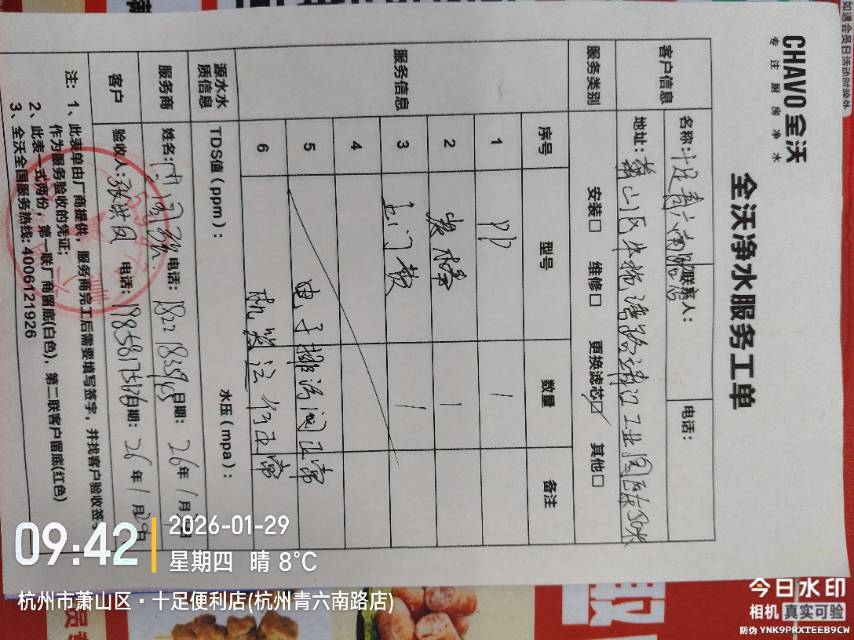 CHAVO全沃
专注厨房净水
全沃净水服务工单
客户信息
名称：十足青六南路店
联系人：
电话：
地址：萧山区
服务类别
安装□ 维修□ 更换滤芯☑ 其他□
服务信息
序号 型号 数量 备注
1 PP 1
2 炭棒 1
3 上门费 1
4
5 电子排污阀正常
6 机器运行正常
源水水质信息
TDS值（ppm）： 水压（mpa）：
服务商
姓名： 电话： 日期：26年1月
客户
验收人：张洪凤 电话： 日期：26年1月29日
注：1、此表单由厂商提供，服务商完工后需要填写签字，并找客户验收签
作为服务验收的凭证；
2、此表一式两份，第一联厂商留底(白色)，第二联客户留底(红色)
3、全沃全国服务热线：4006121926
09:42
2026-01-29
星期四 晴 8℃
杭州市萧山区·十足便利店(杭州青六南路店)
今日水印
相机 真实可验
防伪 YNK9PRXTEEB9CW